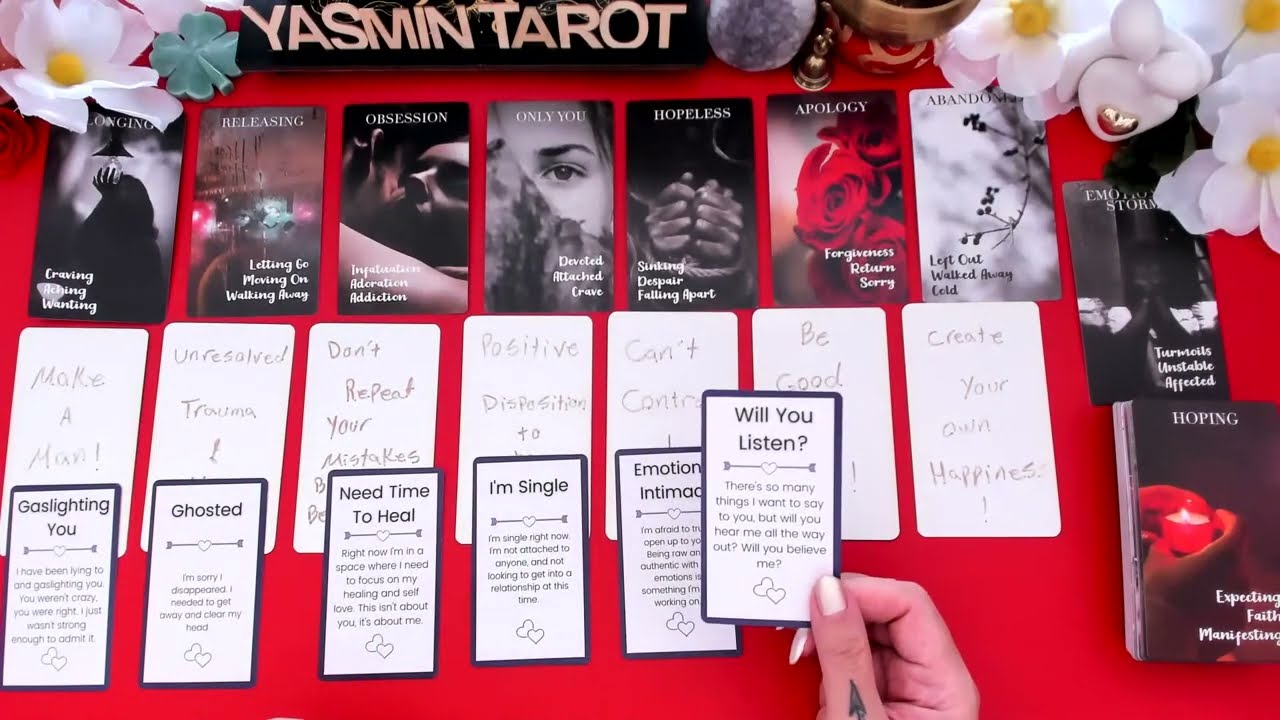 YASMÍN TAROT
LONGING
Craving
Aching
Wanting
RELEASING
Letting Go
Moving On
Walking Away
OBSESSION
Infatuation
Adoration
Addiction
ONLY YOU
Devoted
Attached
Crave
HOPELESS
Sinking
Despair
Falling Apart
APOLOGY
Forgiveness
Return
Sorry
ABANDONED
Left Out
Walked Away
Cold
EMOTIONAL
STORM
Turmoils
Unstable
Affected
HOPING
Expecting
Faith
Manifesting
Make
A
Man!
Unresolved
Trauma
&
Don't
Repeat
Your
Mistakes
Positive
Disposition
to
Can't
Contro
Be
Good
!
Create
Your
Own
Happiness
!
Gaslighting
You
I have been lying to
and gaslighting you.
You weren't crazy,
you were right. I just
wasn't strong
enough to admit it.
Ghosted
I'm sorry I
disappeared. I
needed to get
away and clear my
head
Need Time
To Heal
Right now I'm in a
space where I need
to focus on my
healing and self
love. This isn't about
you, it's about me.
I'm Single
I'm single right now.
I'm not attached to
anyone, and not
looking to get into a
relationship at this
time.
Emotion
Intimac
I'm afraid to tru
open up to yo
Being raw an
authentic with
emotions is
something I'm
working on.
Will You
Listen?
There's so many
things I want to say
to you, but will you
hear me all the way
out? Will you believe
me?